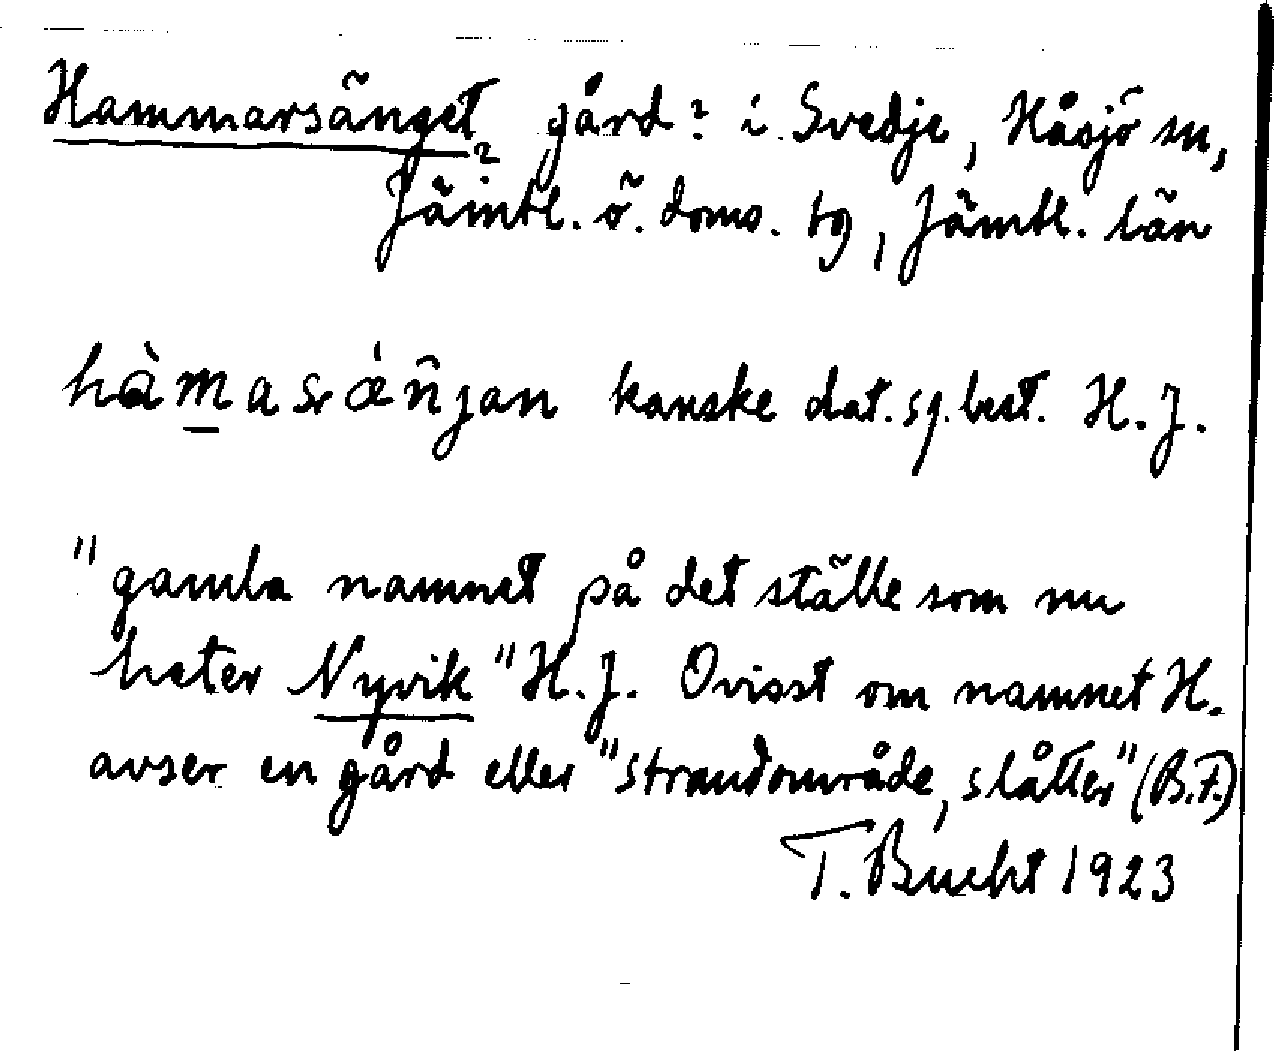 Hammarsänget? gård? i Svedje, Håsjö sn,
Jämtl. ö. doms. tg, Jämtl. län
hàmasæ̀ñjan kanske dat. sg. best. H. J.
"gamla namnet på det ställe som nu
heter Nyvik" H. J. Ovisst om namnet H.
avser en gård eller "strandområde, slåtter" (B.F.)
T. Bucht 1923